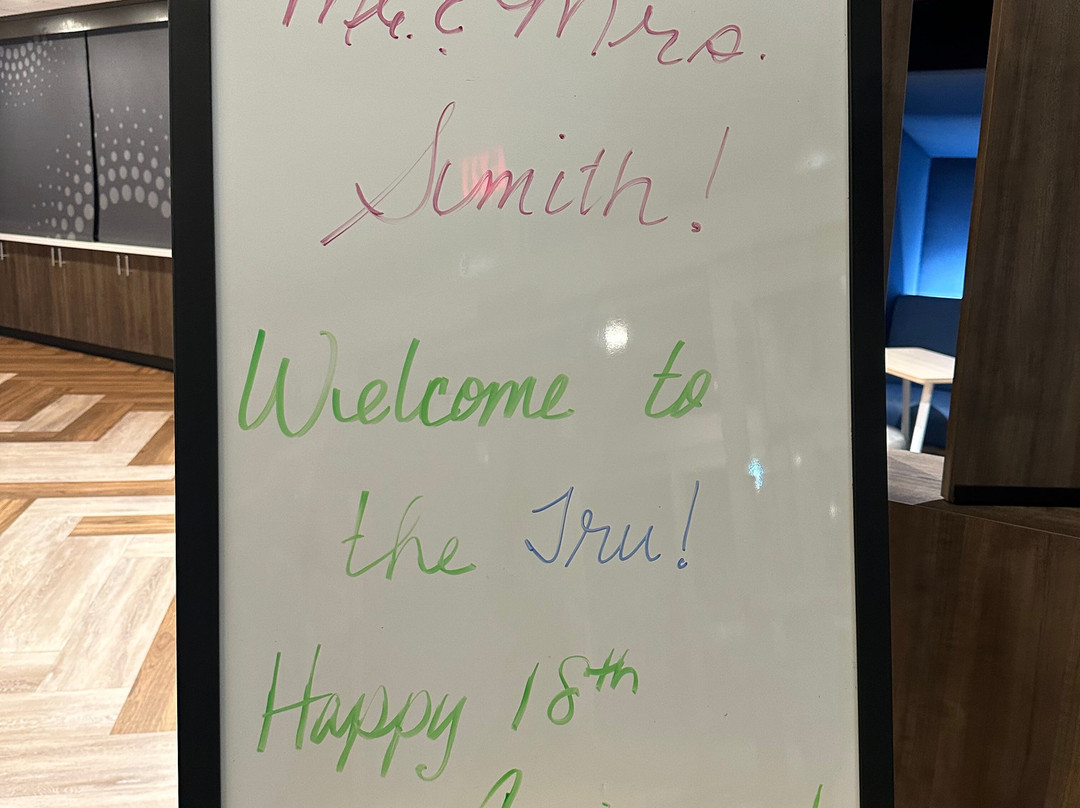 Mr. & Mrs.
Smith!
Welcome to
the Tru!
Happy 18th